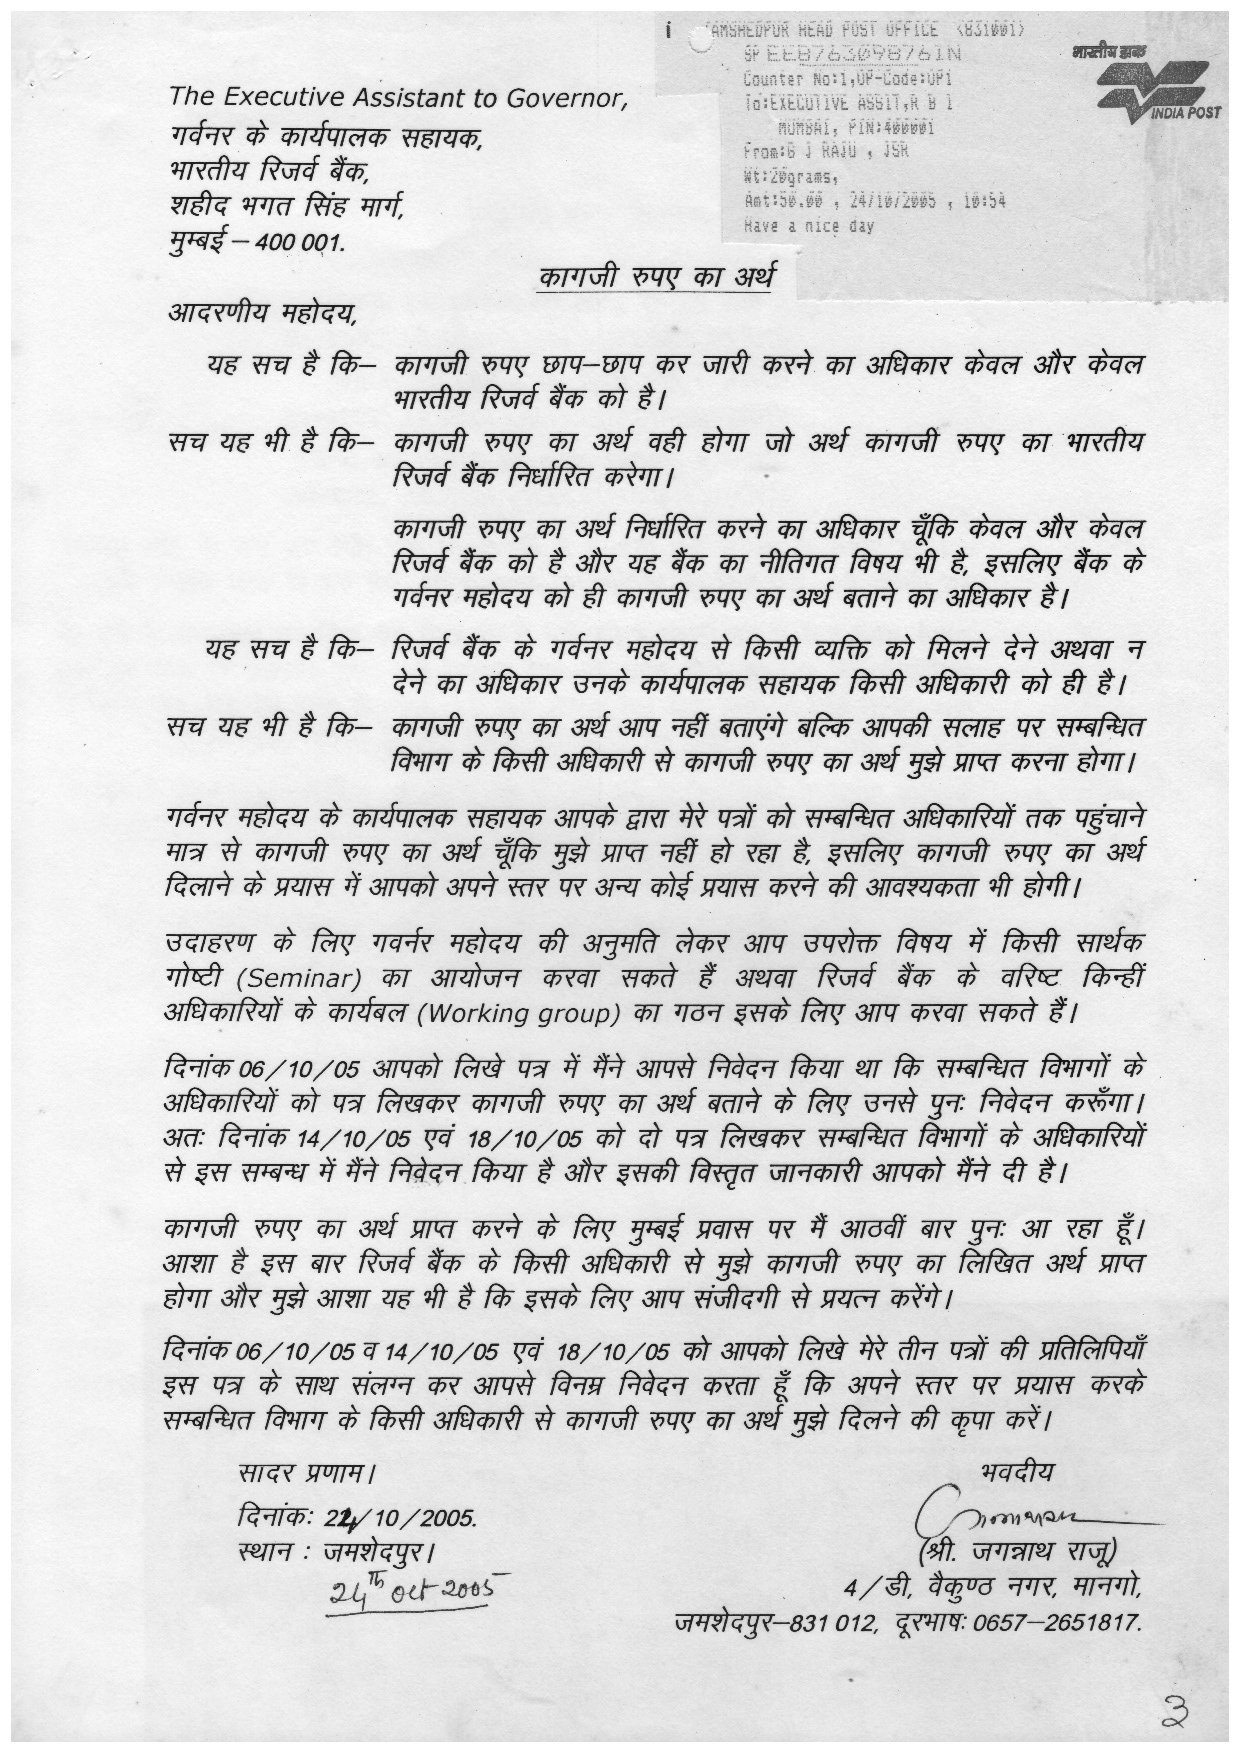 i JAMSHEDPUR HEAD POST OFFICE (831001)
SP EE876309876IN
Counter No:1,OP-Code:OP1
To:EXECUTIVE ASSIT,R B I
MUMBAI, PIN:400001
From:B J RAJU , JSR
Wt:20grams,
Amt:50.00 , 24/10/2005 , 10:54
Have a nice day
भारतीय डाक
INDIA POST
The Executive Assistant to Governor,
गर्वनर के कार्यपालक सहायक,
भारतीय रिजर्व बैंक,
शहीद भगत सिंह मार्ग,
मुम्बई – 400 001.
कागजी रुपए का अर्थ
आदरणीय महोदय,
यह सच है कि– कागजी रुपए छाप–छाप कर जारी करने का अधिकार केवल और केवल
भारतीय रिजर्व बैंक को है।
सच यह भी है कि– कागजी रुपए का अर्थ वही होगा जो अर्थ कागजी रुपए का भारतीय
रिजर्व बैंक निर्धारित करेगा।
कागजी रुपए का अर्थ निर्धारित करने का अधिकार चूँकि केवल और केवल
रिजर्व बैंक को है और यह बैंक का नीतिगत विषय भी है, इसलिए बैंक के
गर्वनर महोदय को ही कागजी रुपए का अर्थ बताने का अधिकार है।
यह सच है कि– रिजर्व बैंक के गर्वनर महोदय से किसी व्यक्ति को मिलने देने अथवा न
देने का अधिकार उनके कार्यपालक सहायक किसी अधिकारी को ही है।
सच यह भी है कि– कागजी रुपए का अर्थ आप नहीं बताएंगे बल्कि आपकी सलाह पर सम्बन्धित
विभाग के किसी अधिकारी से कागजी रुपए का अर्थ मुझे प्राप्त करना होगा।
गर्वनर महोदय के कार्यपालक सहायक आपके द्वारा मेरे पत्रों को सम्बन्धित अधिकारियों तक पहुंचाने
मात्र से कागजी रुपए का अर्थ चूँकि मुझे प्राप्त नहीं हो रहा है, इसलिए कागजी रुपए का अर्थ
दिलाने के प्रयास में आपको अपने स्तर पर अन्य कोई प्रयास करने की आवश्यकता भी होगी।
उदाहरण के लिए गवर्नर महोदय की अनुमति लेकर आप उपरोक्त विषय में किसी सार्थक
गोष्टी (Seminar) का आयोजन करवा सकते हैं अथवा रिजर्व बैंक के वरिष्ट किन्हीं
अधिकारियों के कार्यबल (Working group) का गठन इसके लिए आप करवा सकते हैं।
दिनांक 06/10/05 आपको लिखे पत्र में मैंने आपसे निवेदन किया था कि सम्बन्धित विभागों के
अधिकारियों को पत्र लिखकर कागजी रुपए का अर्थ बताने के लिए उनसे पुनः निवेदन करूँगा।
अतः दिनांक 14/10/05 एवं 18/10/05 को दो पत्र लिखकर सम्बन्धित विभागों के अधिकारियों
से इस सम्बन्ध में मैंने निवेदन किया है और इसकी विस्तृत जानकारी आपको मैंने दी है।
कागजी रुपए का अर्थ प्राप्त करने के लिए मुम्बई प्रवास पर मैं आठवीं बार पुनः आ रहा हूँ।
आशा है इस बार रिजर्व बैंक के किसी अधिकारी से मुझे कागजी रुपए का लिखित अर्थ प्राप्त
होगा और मुझे आशा यह भी है कि इसके लिए आप संजीदगी से प्रयत्न करेंगे।
दिनांक 06/10/05 व 14/10/05 एवं 18/10/05 को आपको लिखे मेरे तीन पत्रों की प्रतिलिपियाँ
इस पत्र के साथ संलग्न कर आपसे विनम्र निवेदन करता हूँ कि अपने स्तर पर प्रयास करके
सम्बन्धित विभाग के किसी अधिकारी से कागजी रुपए का अर्थ मुझे दिलने की कृपा करें।
सादर प्रणाम। भवदीय
दिनांकः 24/10/2005.
स्थान : जमशेदपुर। (श्री. जगन्नाथ राजू)
24th Oct 2005
4/डी, वैकुण्ठ नगर, मानगो,
जमशेदपुर–831 012, दूरभाषः 0657–2651817.
3